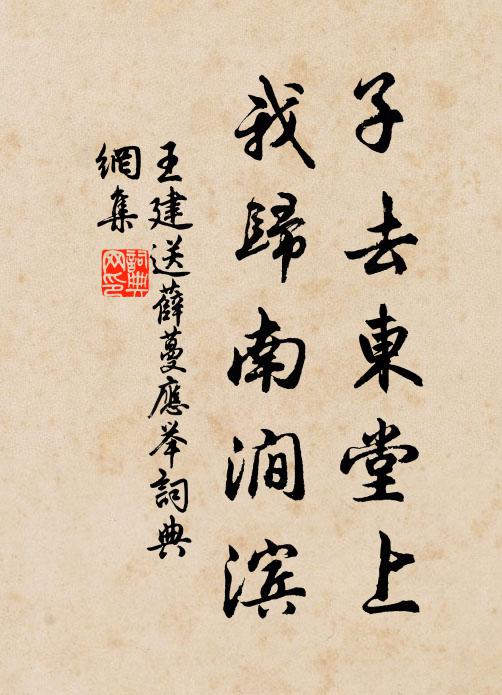 子去東堂上
我歸南澗滨
王建送薛蔓應举詞典
網集
詞典
网印